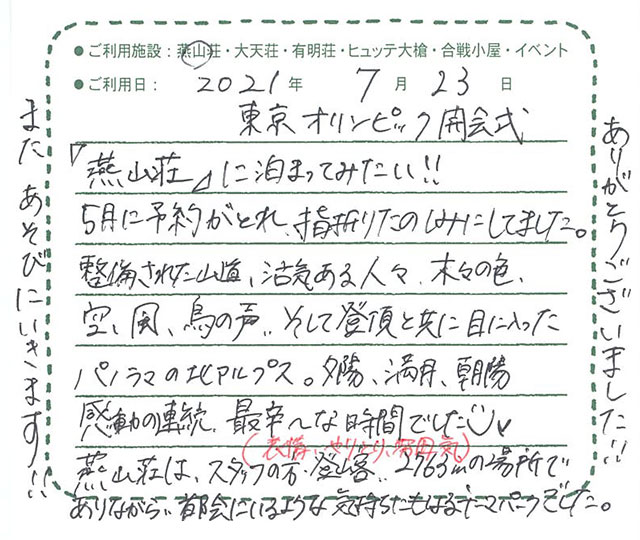 ●ご利用施設：燕山荘・大天荘・有明荘・ヒュッテ大槍・合戦小屋・イベント
●ご利用日：2021年 7月 23日
東京オリンピック開会式
『燕山荘』に泊まってみたい!!
5月に予約がとれ、指折りたのしみにしてました。
整備された山道、活気ある人々、木々の色、
空、風、鳥の声、、そして登頂と共に目に入った
パノラマの北アルプス。夕陽、満月、朝陽
感動の連続、最幸〜な時間でした
(表情、やりとり、雰囲気)
燕山荘は、スタッフの方・登山客、、2763mの場所で
ありながら、都会にいるような気持ちにもなるテーマパークでした。
ありがとうございました!!
また あそびにいきます!!